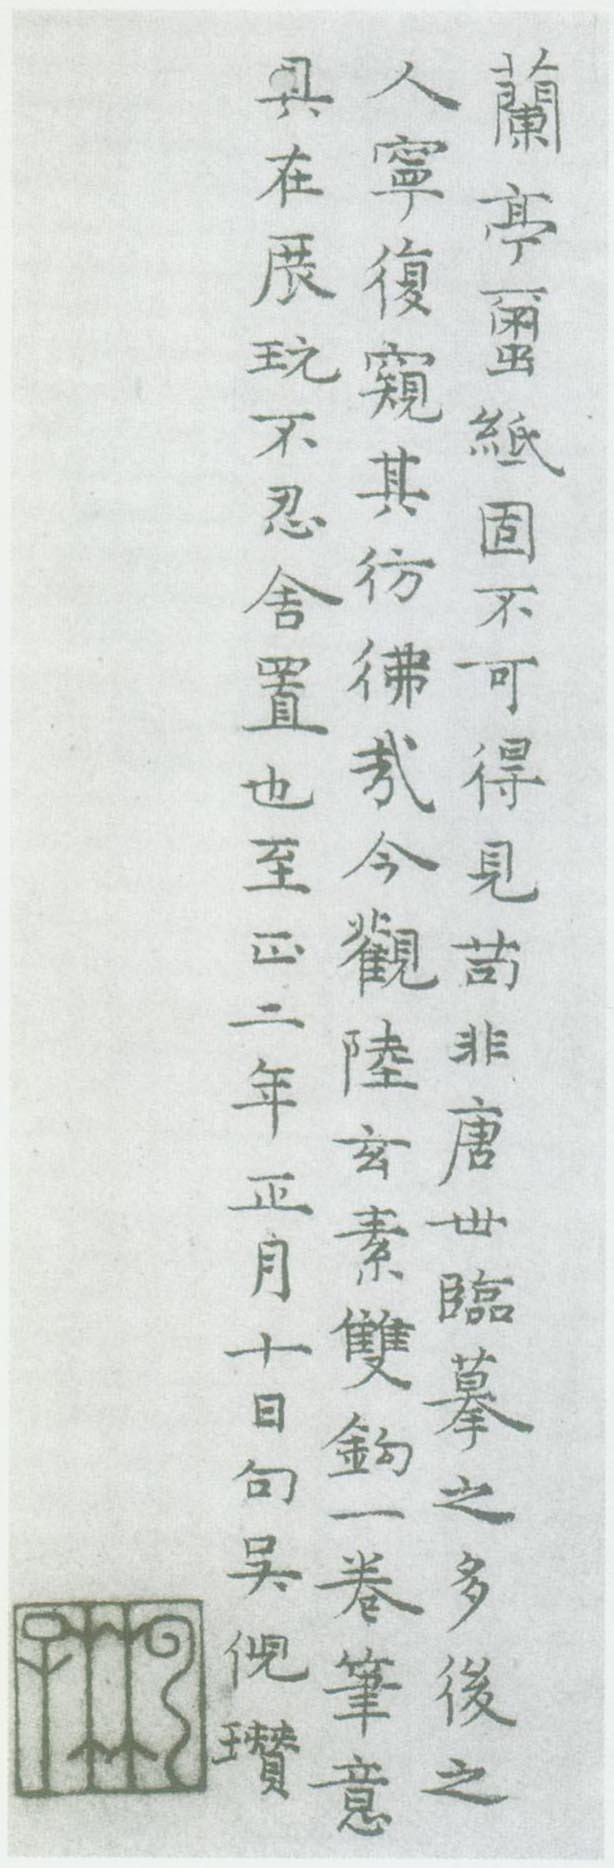 蘭亭䌳紙固不可得見苟非唐世臨摹之多後之
人寧復窺其彷彿哉今觀陸玄素雙鈎一卷筆意
具在展玩不忍舍置也至正二年正月十日句吴倪瓚